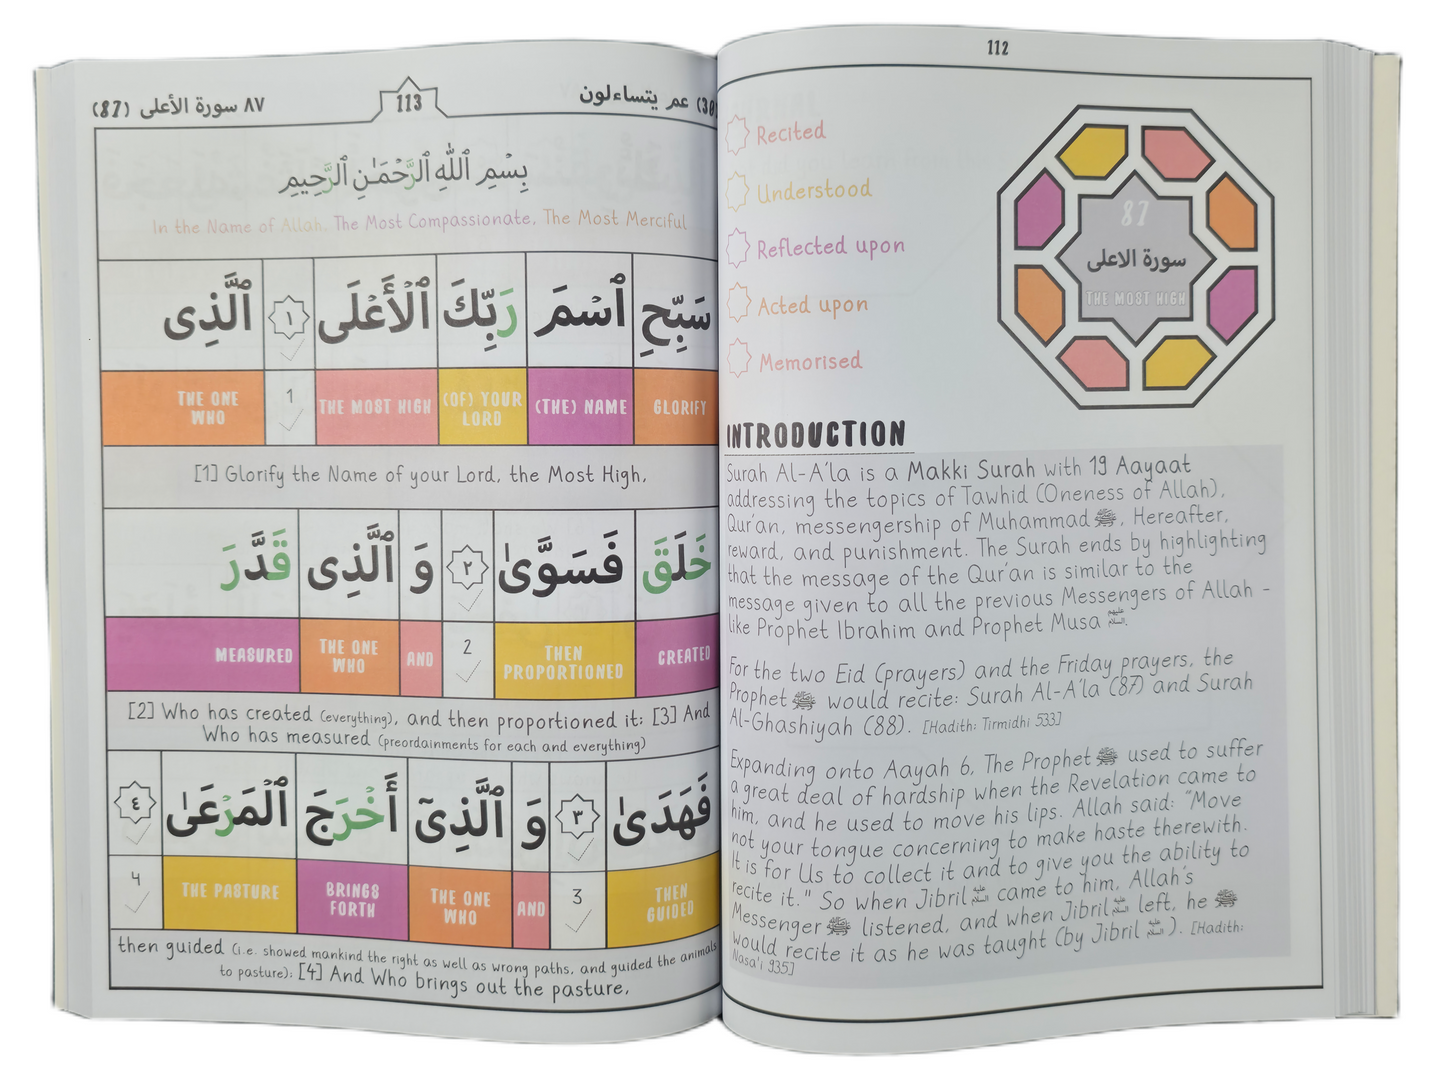 112
Recited
Understood
Reflected upon
Acted upon
Memorised
87
سورة الاعلى
THE MOST HIGH
INTRODUCTION
Surah Al-A'la is a Makki Surah with 19 Aayaat
addressing the topics of Tawhid (Oneness of Allah),
Qur'an, messengership of Muhammad ﷺ, Hereafter,
reward, and punishment. The Surah ends by highlighting
that the message of the Qur'an is similar to the
message given to all the previous Messengers of Allah -
like Prophet Ibrahim and Prophet Musa
For the two Eid (prayers) and the Friday prayers, the
Prophet ﷺ would recite: Surah Al-A'la (87) and Surah
Al-Ghashiyah (88). [Hadith: Tirmidhi 533]
Expanding onto Aayah 6, The Prophet ﷺ used to suffer
a great deal of hardship when the Revelation came to
him, and he used to move his lips. Allah said: "Move
not your tongue concerning to make haste therewith.
It is for Us to collect it and to give you the ability to
recite it." So when Jibril came to him, Allah's
Messenger ﷺ listened, and when Jibril left, he ﷺ
would recite it as he was taught (by Jibril). [Hadith:
Nasa'i 935]
(30) عم يتساءلون
113
٨٧ سورة الأعلى (87)
بِسْمِ ٱللَّهِ ٱلرَّحْمَـٰنِ ٱلرَّحِيمِ
In the Name of Allah, The Most Compassionate, The Most Merciful
سَبِّحِ ٱسْمَ رَبِّكَ ٱلْأَعْلَى ١ ٱلَّذِى
GLORIFY (THE) NAME (OF) YOUR LORD THE MOST HIGH 1 THE ONE WHO
[1] Glorify the Name of your Lord, the Most High,
خَلَقَ فَسَوَّىٰ ٢ وَ ٱلَّذِى قَدَّرَ
CREATED THEN PROPORTIONED 2 AND THE ONE WHO MEASURED
[2] Who has created (everything), and then proportioned it; [3] And
Who has measured (preordainments for each and everything)
فَهَدَىٰ ٣ وَ ٱلَّذِىٓ أَخْرَجَ ٱلْمَرْعَىٰ ٤
THEN GUIDED 3 AND THE ONE WHO BRINGS FORTH THE PASTURE 4
then guided (i.e. showed mankind the right as well as wrong paths, and guided the animals
to pasture); [4] And Who brings out the pasture,